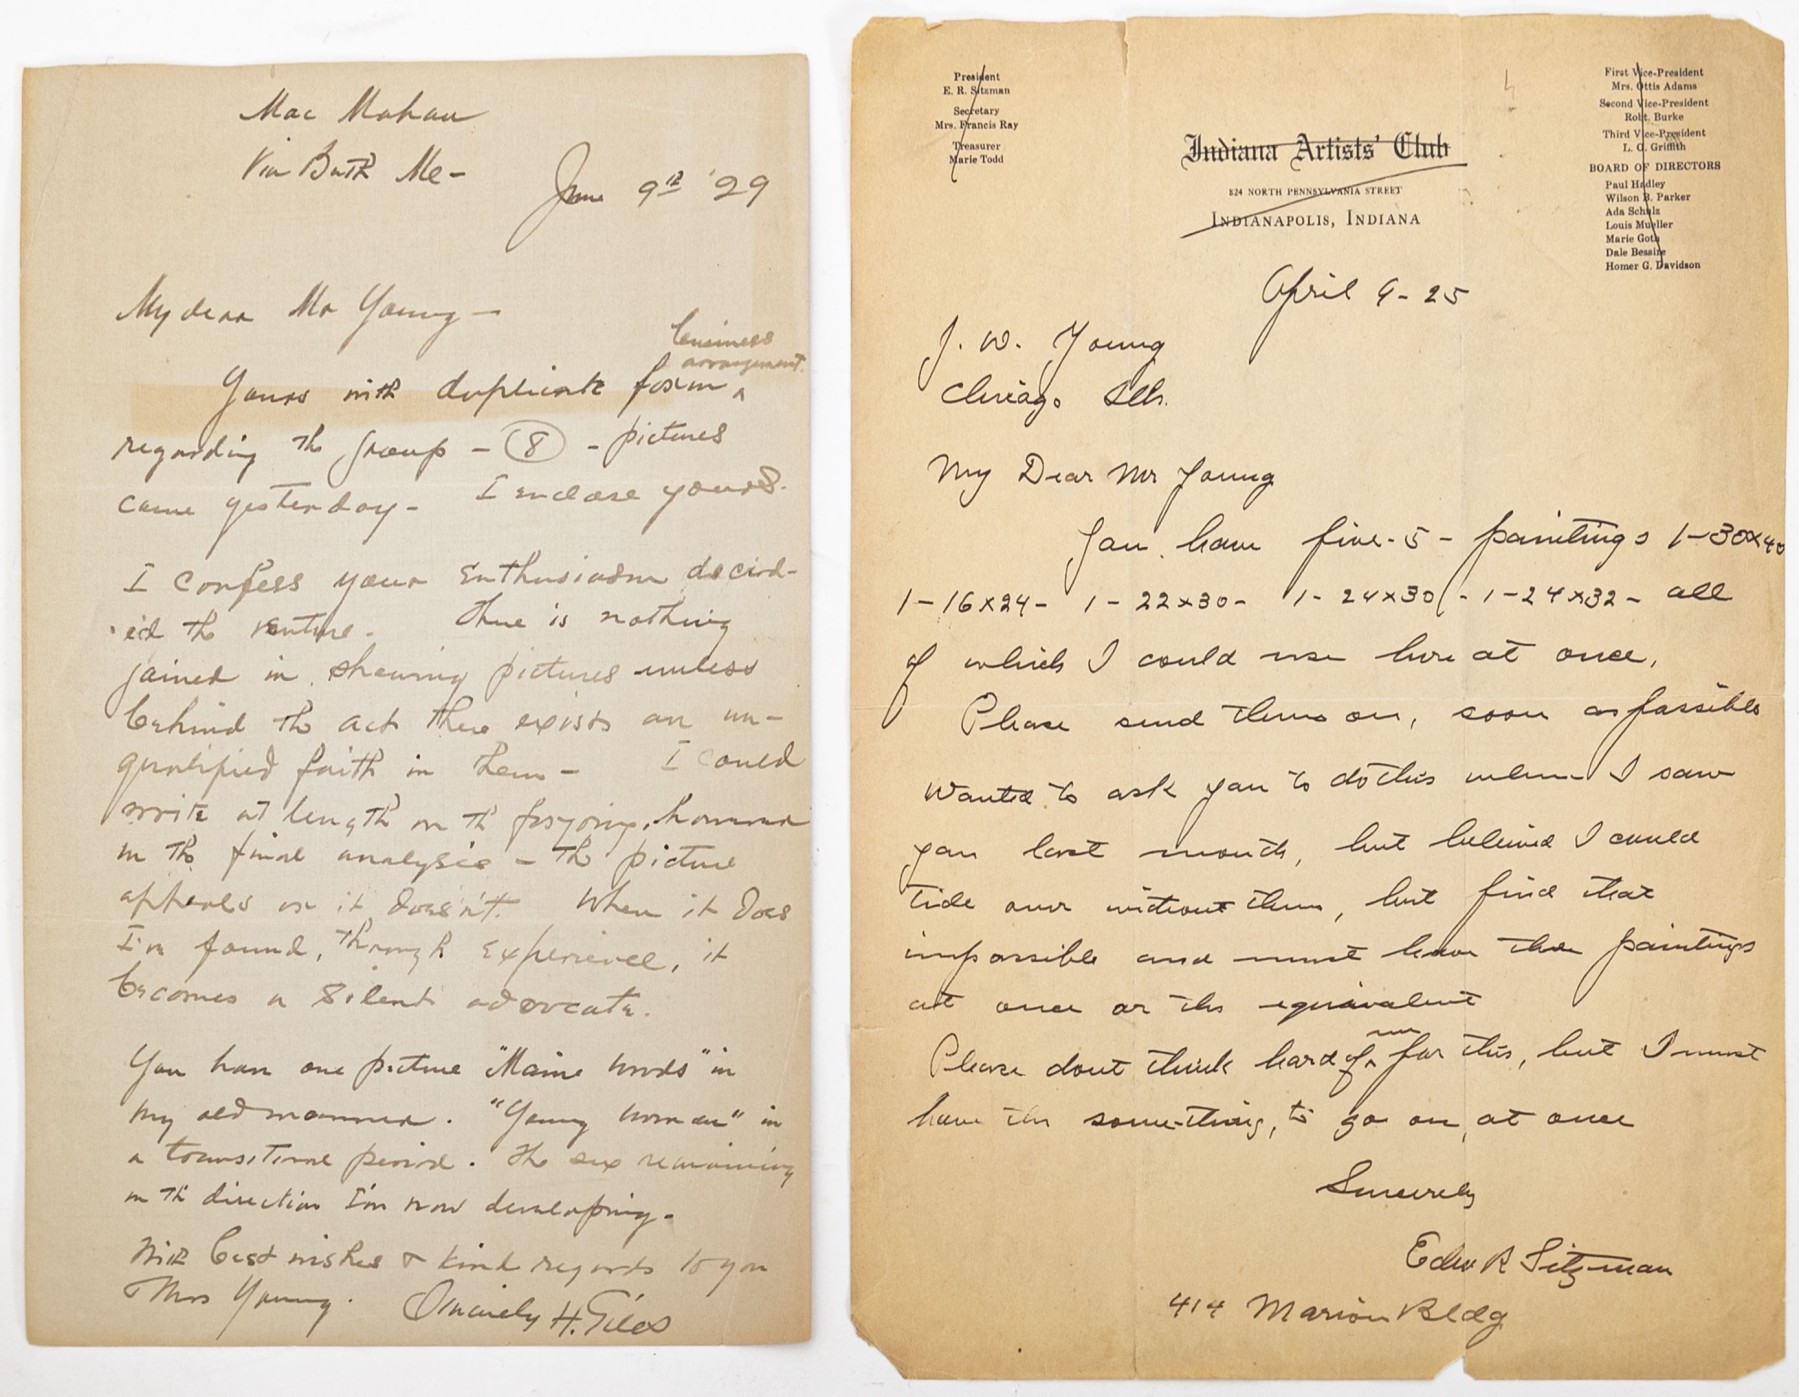 Mac Mahan
Via Bath Me-
June 9th '29
My dear Mr Young -
business
arrangement
Yours with duplicate form
regarding the group - 8 - pictures
came yesterday - I enclose yours.
I confess your enthusiasm decid-
ed the venture. There is nothing
gained in showing pictures unless
behind the act there exists an un-
qualified faith in them - I could
write at length on the forgoing, however
in the final analysis - the picture
appeals or it doesn't. When it does
I'm found, through experience, it
becomes a silent advocate.
You have one picture "Maine Woods" in
my old manner. "Young Woman" in
a transitional period. The six remaining
in the direction I'm now developing.
With best wishes & kind regards to you
Mrs Young. Sincerely H. Giles
President
E. R. Sitzman
Secretary
Mrs. Francis Ray
Treasurer
Marie Todd
Indiana Artists' Club
824 NORTH PENNSYLVANIA STREET
INDIANAPOLIS, INDIANA
First Vice-President
Mrs. Ottis Adams
Second Vice-President
Robt. Burke
Third Vice-President
L. O. Griffith
BOARD OF DIRECTORS
Paul Hadley
Wilson B. Parker
Ada Schulz
Louis Mueller
Marie Goth
Dale Bessire
Homer G. Davidson
April 9-25
J. W. Young
Chicago Ills.
My Dear Mr Young
You have five - 5 - paintings 1-30x40
1-16x24- 1-22x30- 1-24x30-1-24x32- all
of which I could use here at once.
Please send them on, soon as possible
Wanted to ask you to do this when I saw
you last month, but believed I could
tide over without them, but find that
impossible and must have the paintings
at once or the equivalent
Please dont think hard of me for this, but I must
have the something, to go on, at once
Sincerely
Edw R Sitzman
414 Marion Bldg